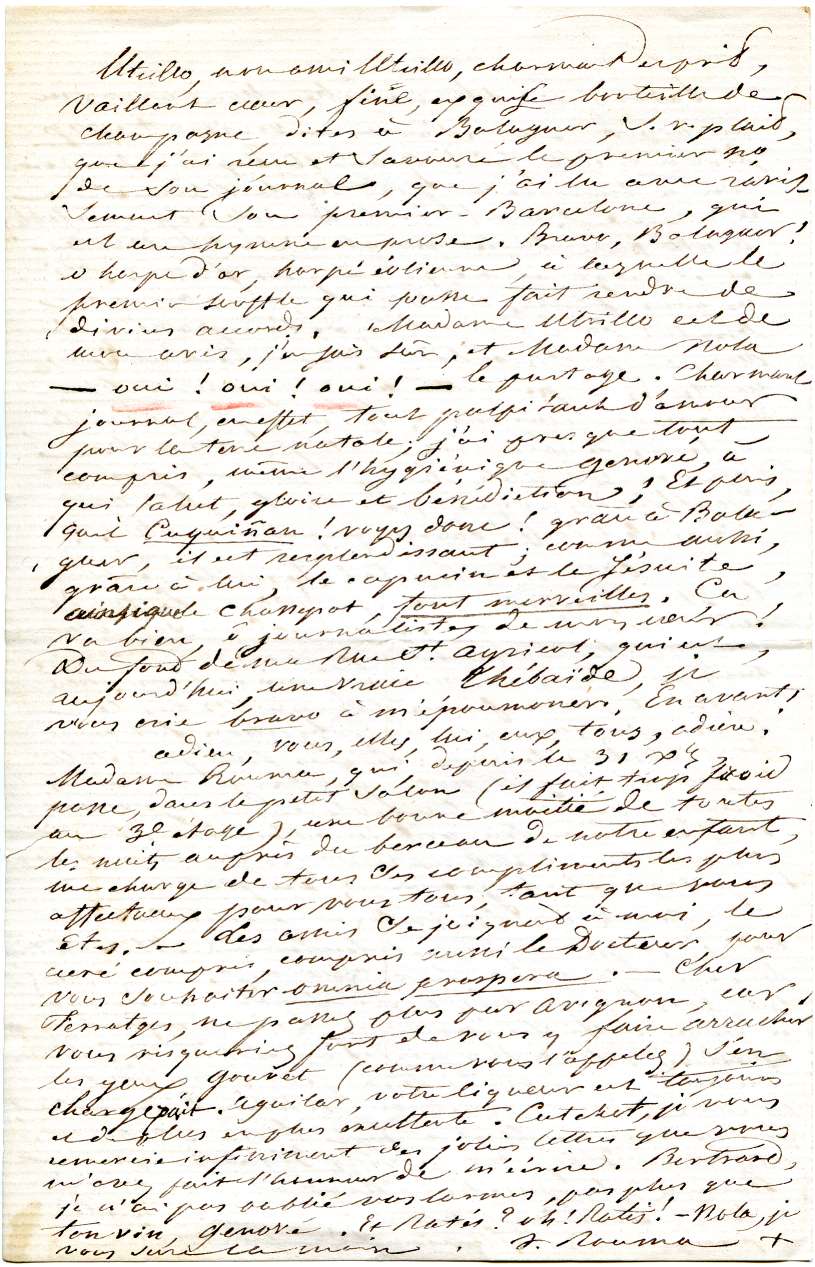 Utrillo, mon ami Utrillo, charmant esprit,
vaillant cœur, fine, exquise bouteille de
champagne, dites à Balaguer, s. v. plaît,
que j'ai reçu et savouré le premier no
de son journal, que j'ai lu avec ravis-
sement son premier-Barcelone, qui
est un hymne en prose. Bravo, Balaguer!
o harpe d'or, harpe éolienne, à laquelle le
premier souffle qui passe fait rendre de
divins accords. Madame Utrillo est de
mon avis, j'en suis sûr, et Madame Nola
— oui! oui! oui! — le partage. Charmant
journal, en effet, tout palpitant d'amour
pour la terre natale; j'ai presque tout
compris, même l'hygiénique Genové, à
qui salut, gloire et bénédiction! Et puis,
quel Cuquiñan! voyez donc! grâce à Bala-
guer, il est resplendissant; comme aussi,
grâce à lui, le capucin et le Jésuite,
ainsi que le Chassepot, font merveilles. Ça
va bien, ô journalistes de mon cœur!
Du fond de ma Rue St. Agricol, qui est,
aujourd'hui, une vraie Thébaïde, je
vous crie bravo à m'époumoner. En avant!
adieu, vous, elles, lui, eux, tous, adieu!
Madame Rouma, qui depuis le 31 Xbre
passe, dans le petit salon (il fait trop froid
au 3e étage), une bonne moitié de toutes
les nuits auprès du berceau de notre enfant,
me charge de tous ses compliments les plus
affectueux pour vous tous, tant que vous
êtes. — Les amis se joignent à moi, le
curé compris, compris aussi le Docteur, pour
vous souhaiter omnia prospera. — Cher
Ferratges, ne passez plus par Avignon, car
vous risqueriez fort de vous y faire arracher
les yeux. Gouvet (comme vous l'appelez) s'en
chargerait. Aguilar, votre liqueur est toujours
et de plus en plus excellente. Cutchet, je vous
remercie infiniment des jolies lettres que vous
m'avez fait l'honneur de m'écrire. Bertrand,
je n'ai pas oublié vos larmes, pas plus que
ton vin, Genové. Et Ratés? oh! Ratés! — Nola, je
vous serre la main. F. Rouma +